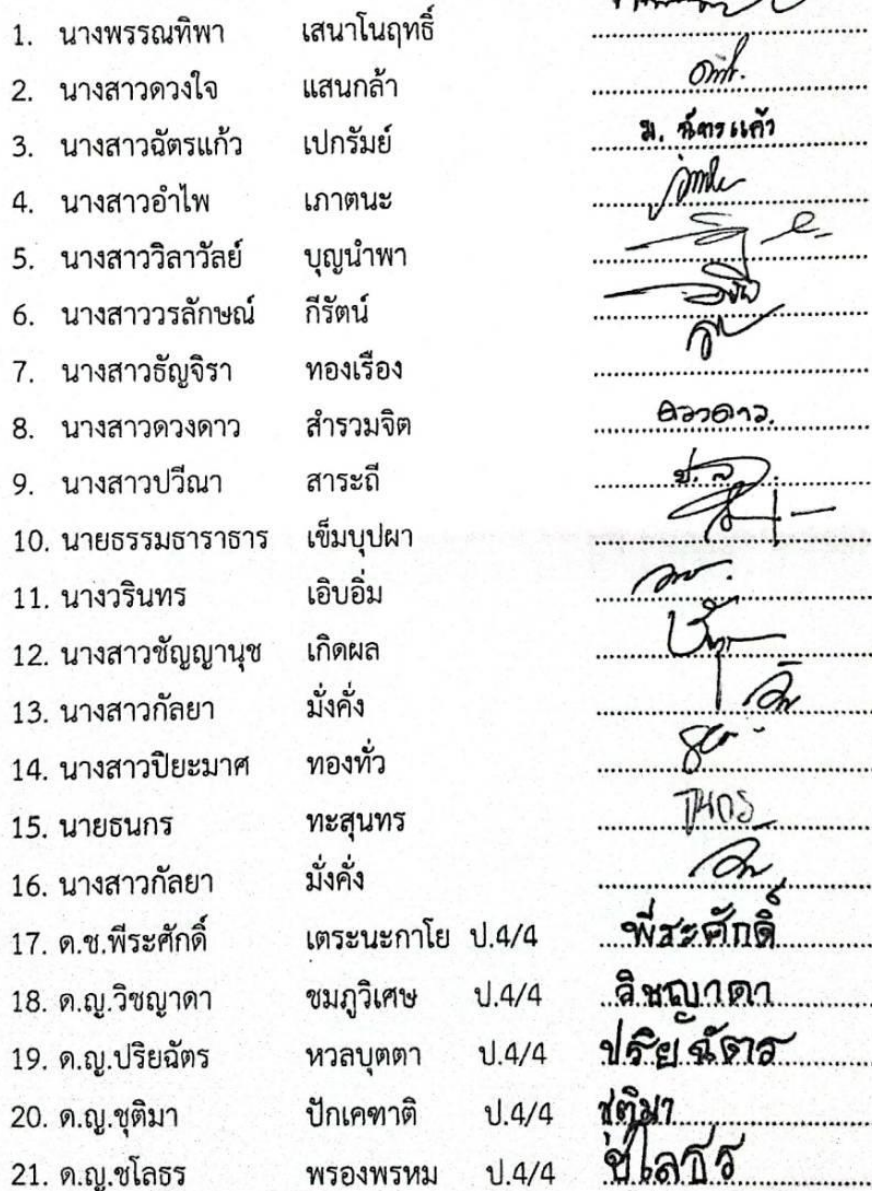 1. นางพรรณทิพา เสนาโนฤทธิ์
2. นางสาวดวงใจ แสนกล้า
3. นางสาวฉัตรแก้ว เปกรัมย์ ม. ฉัตรแก้ว
4. นางสาวอำไพ เภาตนะ
5. นางสาววิลาวัลย์ บุญนำพา
6. นางสาววรลักษณ์ กีรัตน์
7. นางสาวธัญจิรา ทองเรือง
8. นางสาวดวงดาว สำรวมจิต ดวงดาว.
9. นางสาวปวีณา สาระถี
10. นายธรรมธาราธาร เข็มบุปผา
11. นางวรินทร เอิบอิ่ม
12. นางสาวชัญญานุช เกิดผล
13. นางสาวกัลยา มั่งคั่ง
14. นางสาวปิยะมาศ ทองทั่ว
15. นายธนกร ทะสุนทร ธนกร
16. นางสาวกัลยา มั่งคั่ง
17. ด.ช.พีระศักดิ์ เตระนะกาโย ป.4/4 พีระศักดิ์
18. ด.ญ.วิชญาดา ชมภูวิเศษ ป.4/4 วิชญาดา
19. ด.ญ.ปริยฉัตร หวลบุตตา ป.4/4 ปริยฉัตร
20. ด.ญ.ชุติมา ปักเคฑาติ ป.4/4 ชุติมา
21. ด.ญ.ชโลธร พรองพรหม ป.4/4 ชโลธร